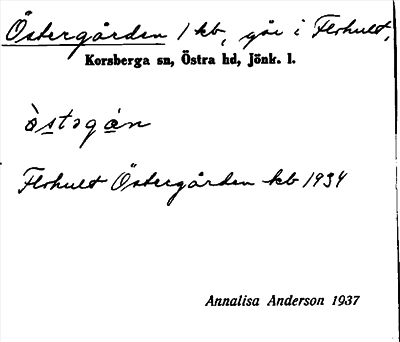 Östergården 1 kb, går i Flohult,
Korsberga sn, Östra hd, Jönk. l.
östagán
Flohult Östergården kb 1934
Annalisa Anderson 1937